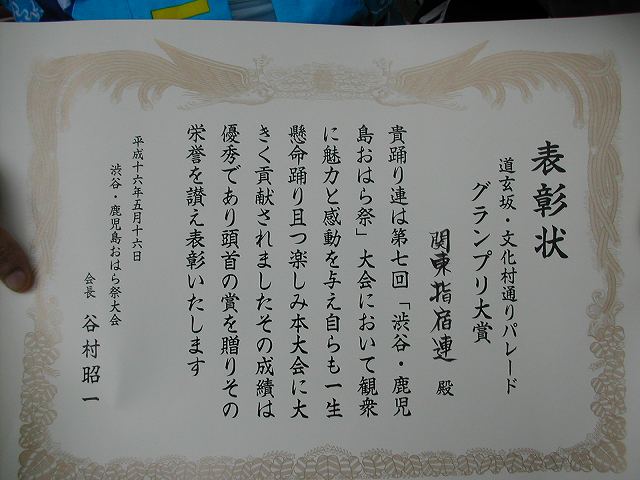 表彰状
道玄坂・文化村通りパレード
グランプリ大賞
関東指宿連 殿
貴踊り連は第七回「渋谷・鹿児
島おはら祭」大会において観衆
に魅力と感動を与え自らも一生
懸命踊り且つ楽しみ本大会に大
きく貢献されましたその成績は
優秀であり頭首の賞を贈りその
栄誉を讃え表彰いたします
平成十六年五月十六日
渋谷・鹿児島おはら祭大会
会長 谷村昭一